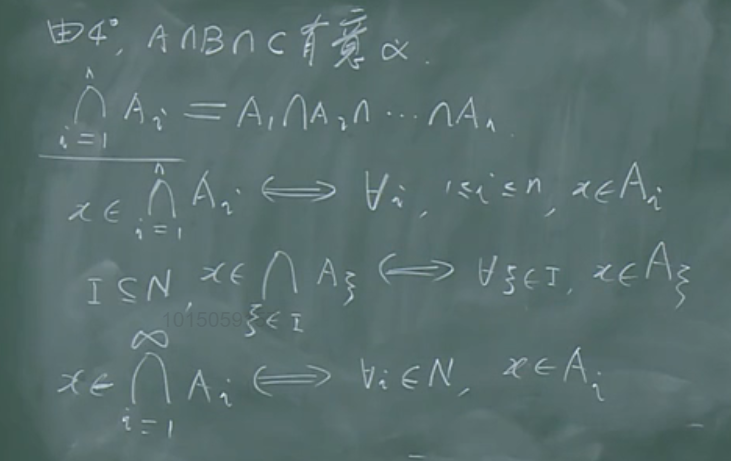 由4°, A∩B∩C有意义.
⋂_{i=1}^{n} A_i = A_1∩A_2∩···∩A_n.
x∈ ⋂_{i=1}^{n} A_i ⟺ ∀i, 1≤i≤n, x∈A_i
I⊆N, x∈ ⋂_{ξ∈I} A_ξ ⟺ ∀ξ∈I, x∈A_ξ
1015059
x∈ ⋂_{i=1}^{∞} A_i ⟺ ∀i∈N, x∈A_i